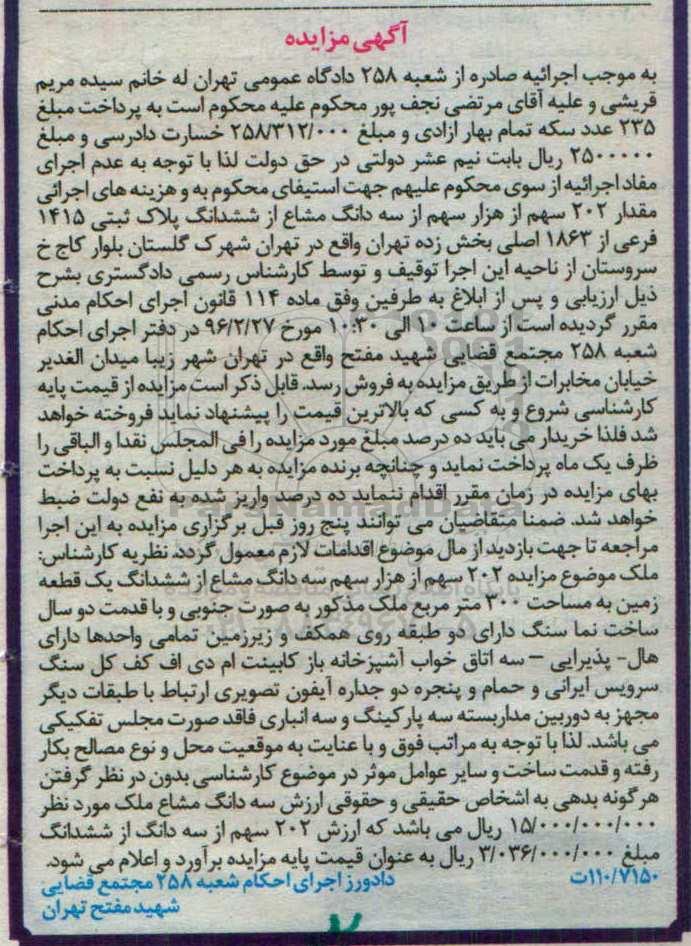 آگهی مزایده
به موجب اجرائیه صادره از شعبه ۲۵۸ دادگاه عمومی تهران له خانم سیده مریم
قریشی و علیه آقای مرتضی نجف پور محکوم علیه محکوم است به پرداخت مبلغ
۲۳۵ عدد سکه تمام بهار ازادی و مبلغ ۲۵۸/۳۱۲/۰۰۰ خسارت دادرسی و مبلغ
۲۵۰۰۰۰۰ ریال بابت نیم عشر دولتی در حق دولت لذا با توجه به عدم اجرای
مفاد اجرائیه از سوی محکوم علیهم جهت استیفای محکوم به و هزینه های اجرائی
مقدار ۲۰۲ سهم از هزار سهم از سه دانگ مشاع از ششدانگ پلاک ثبتی ۱۴۱۵
فرعی از ۱۸۶۳ اصلی بخش زده تهران واقع در تهران شهرک گلستان بلوار کاج خ
سروستان از ناحیه این اجرا توقیف و توسط کارشناس رسمی دادگستری بشرح
ذیل ارزیابی و پس از ابلاغ به طرفین وفق ماده ۱۱۴ قانون اجرای احکام مدنی
مقرر گردیده است از ساعت ۱۰ الی ۱۰:۳۰ مورخ ۹۶/۲/۲۷ در دفتر اجرای احکام
شعبه ۲۵۸ مجتمع قضایی شهید مفتح واقع در تهران شهر زیبا میدان الغدیر
خیابان مخابرات از طریق مزایده به فروش رسد. قابل ذکر است مزایده از قیمت پایه
کارشناسی شروع و به کسی که بالاترین قیمت را پیشنهاد نماید فروخته خواهد
شد فلذا خریدار می باید ده درصد مبلغ مورد مزایده را فی المجلس نقدا و الباقی را
ظرف یک ماه پرداخت نماید و چنانچه برنده مزایده به هر دلیل نسبت به پرداخت
بهای مزایده در زمان مقرر اقدام ننماید ده درصد واریز شده به نفع دولت ضبط
خواهد شد. ضمنا متقاضیان می توانند پنج روز قبل برگزاری مزایده به این اجرا
مراجعه تا جهت بازدید از مال موضوع اقدامات لازم معمول گردد. نظریه کارشناس:
ملک موضوع مزایده ۲۰۲ سهم از هزار سهم سه دانگ مشاع از ششدانگ یک قطعه
زمین به مساحت ۳۰۰ متر مربع ملک مذکور به صورت جنوبی و با قدمت دو سال
ساخت نما سنگ دارای دو طبقه روی همکف و زیرزمین تمامی واحدها دارای
هال- پذیرایی – سه اتاق خواب آشپزخانه باز کابینت ام دی اف کف کل سنگ
سرویس ایرانی و حمام و پنجره دو جداره آیفون تصویری ارتباط با طبقات دیگر
مجهز به دوربین مداربسته سه پارکینگ و سه انباری فاقد صورت مجلس تفکیکی
می باشد. لذا با توجه به مراتب فوق و با عنایت به موقعیت محل و نوع مصالح بکار
رفته و قدمت ساخت و سایر عوامل موثر در موضوع کارشناسی بدون در نظر گرفتن
هرگونه بدهی به اشخاص حقیقی و حقوقی ارزش سه دانگ مشاع ملک مورد نظر
۱۵/۰۰۰/۰۰۰/۰۰۰ ریال می باشد که ارزش ۲۰۲ سهم از سه دانگ از ششدانگ
مبلغ ۳/۰۳۶/۰۰۰/۰۰۰ ریال به عنوان قیمت پایه مزایده برآورد و اعلام می شود.
۱۱۰/۷۱۵۰ت دادورز اجرای احکام شعبه ۲۵۸ مجتمع قضایی
شهید مفتح تهران